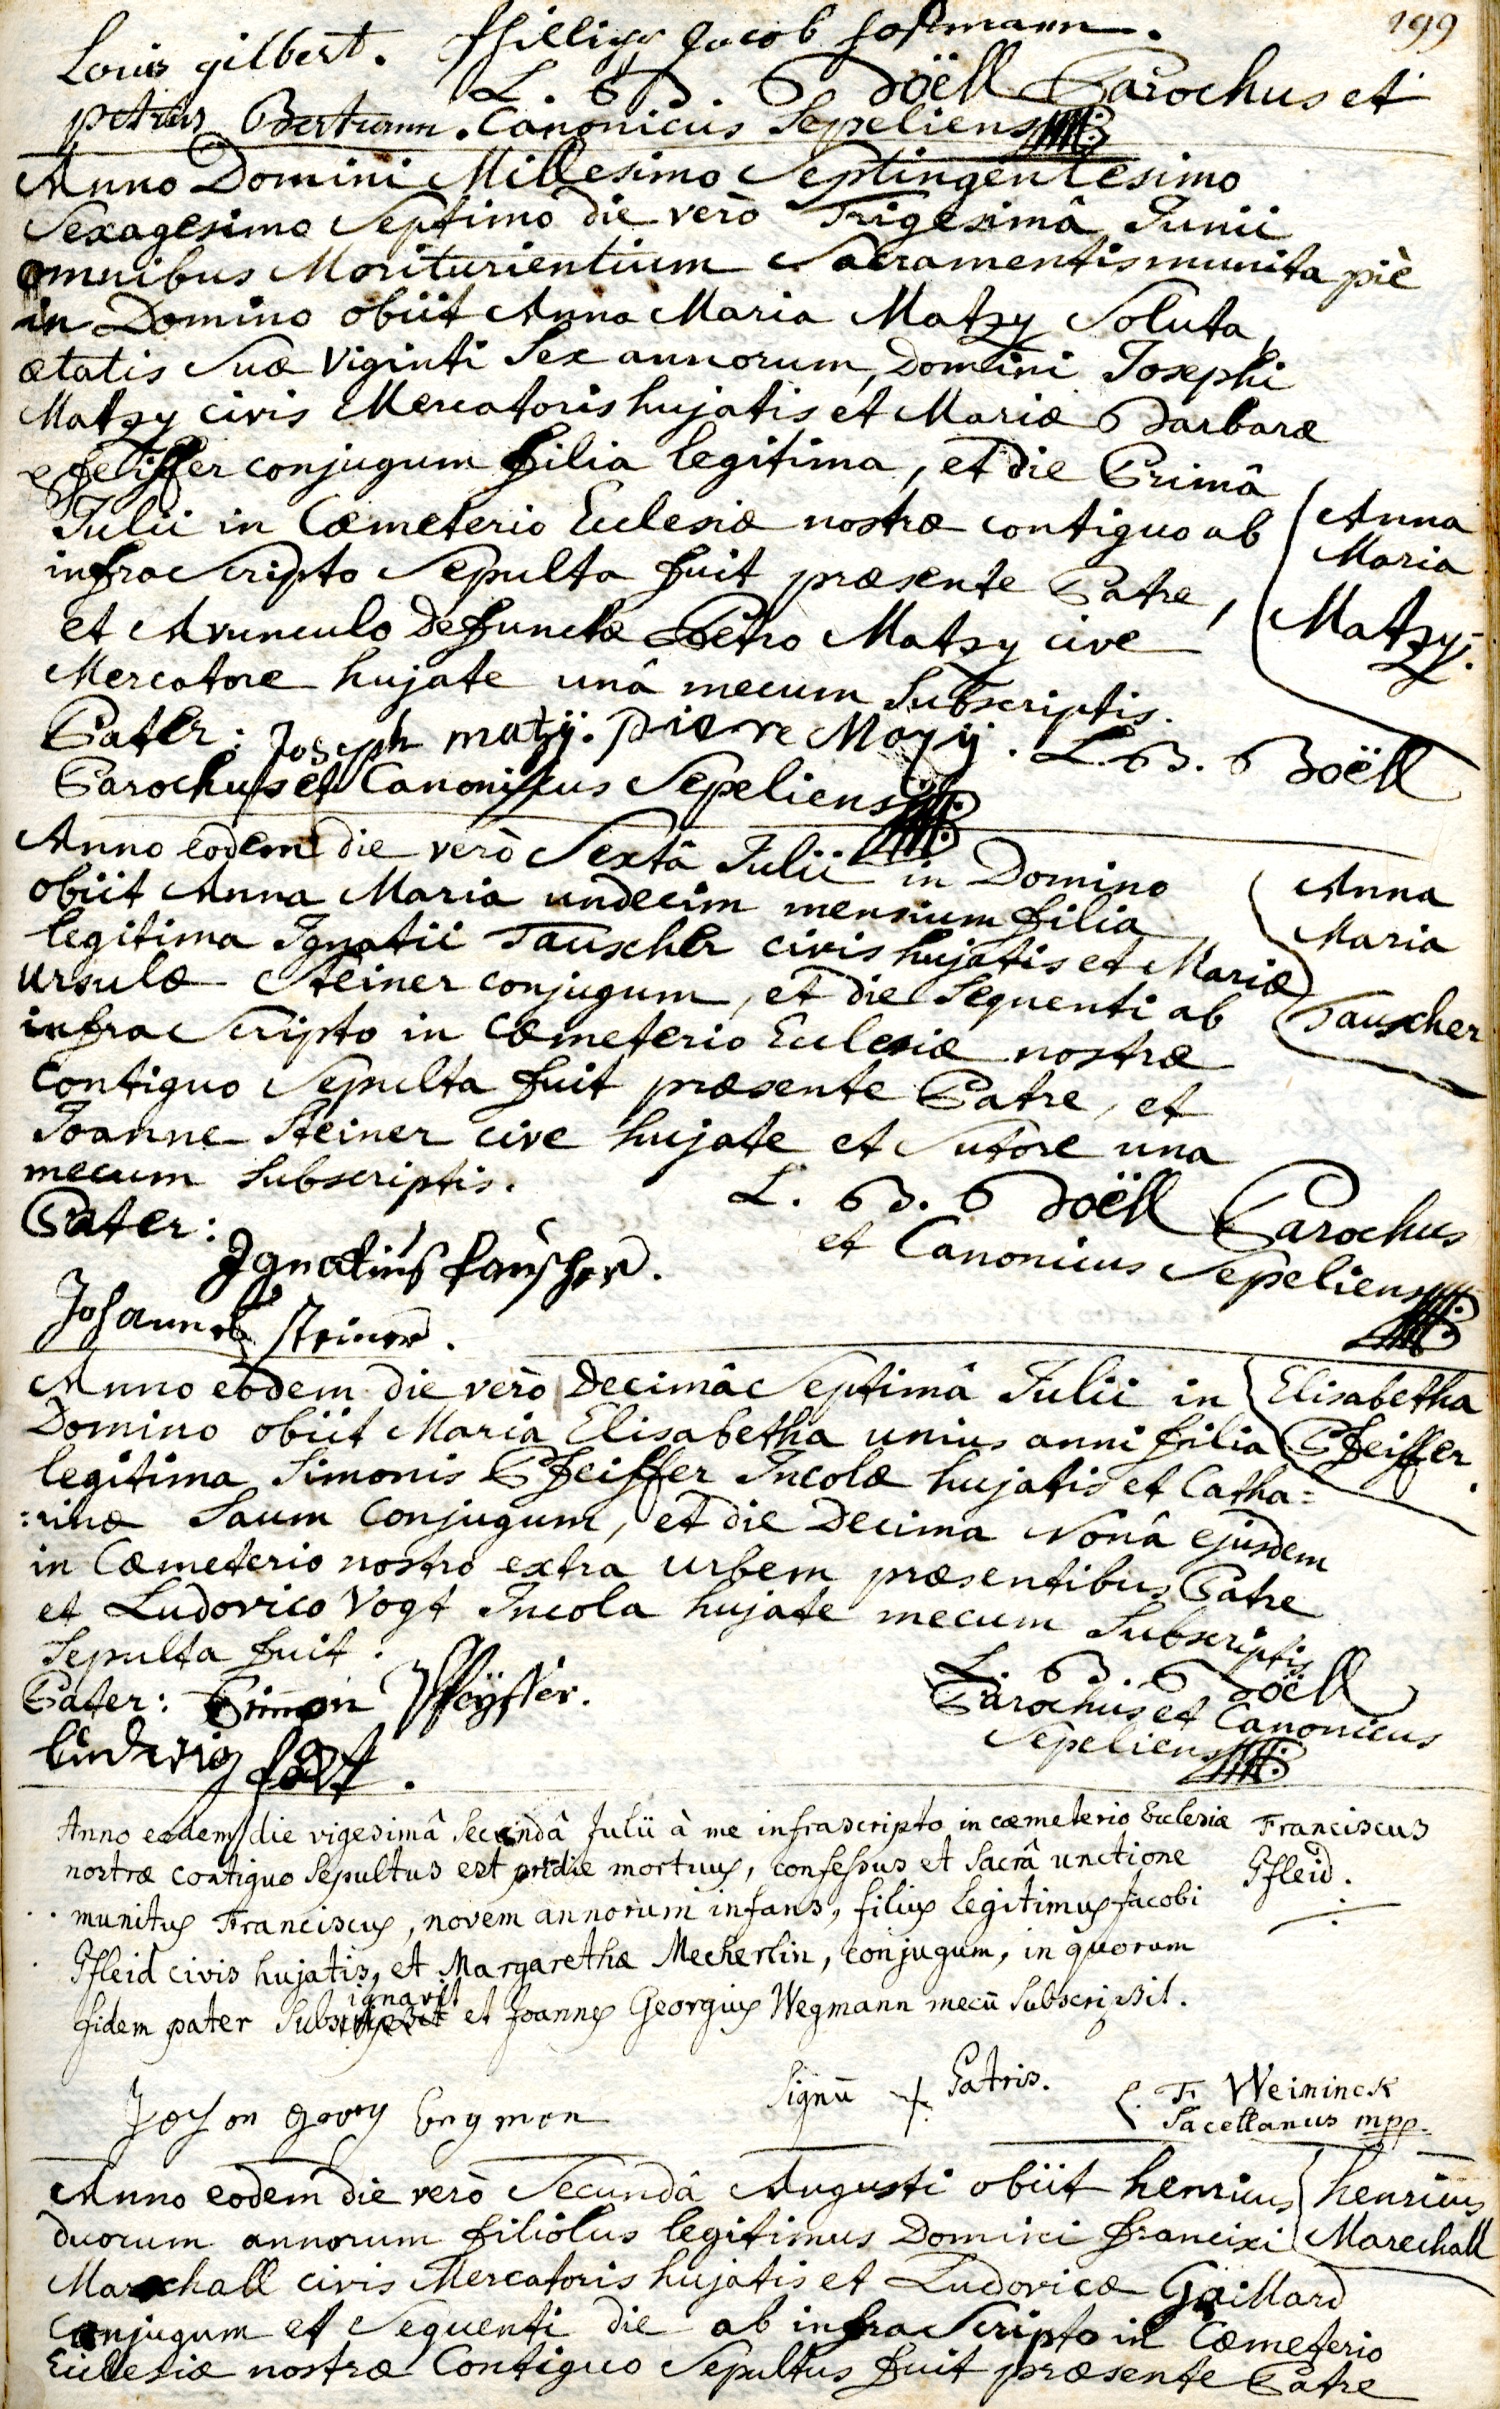 199
Louis gilbert. Philipp Jacob hoffmann.
L. B. Boëll Parochus et
petrus Bertrann. Canonicus Sepeliens
Anno Domini Millesimo Septingentesimo
Sexagesimo Septimo die verò Trigesimâ Junii
omnibus Moriturientium Sacramentis munita piè
in Domino obiit Anna Maria Matzy Soluta,
ætatis Suæ Viginti Sex annorum, Domini Josephi
Matzy civis Mercatoris hujatis et Mariæ Barbaræ
Pfeiffer conjugum filia legitima, et die Primâ
Julii in Cæmeterio Ecclesiæ nostræ contiguo ab
infra Scripto Sepulta fuit præsente Patre,
et Avunculo Defunctæ Petro Matzy cive
Mercatore hujate unâ mecum Subscriptis.
Anna
Maria
Matzy.
Pater: Joseph matzÿ. Pierre Mazÿ. L. B. Boëll
Parochus et Canonicus Sepeliens
Anno eodem die verò Sextâ Julii in Domino
obiit Anna Maria undecim mensium filia
legitima Ignatii Tauscher civis hujatis et Mariæ
Ursulæ Steiner conjugum, et die Sequenti ab
infra Scripto in Cæmeterio Ecclesiæ nostræ
Contiguo Sepulta fuit præsente Patre, et
Joanne Steiner cive hujate et Sutore una
mecum Subscriptis.
Anna
Maria
Tauscher
L. B. Boëll Parochus
et Canonicus Sepeliens
Pater:
Ignatius Tauscher.
Johannes Steiner.
Anno eodem die verò Decimâ Septimâ Julii in
Domino obiit Maria Elisabetha unius anni filia
legitima Simonis Pfeiffer Incolæ hujatis et Catha=
:rinæ Saum Conjugum, et die Decima Nonâ ejusdem
in Cæmeterio nostro extra urbem præsentibus Patre
et Ludovico Vogt Incola hujate mecum Subscriptis
Sepulta fuit.
Elisabetha
Pfeiffer.
Pater: Simon Pfeÿffer.
Ludwig
L. B. Boëll
Parochus et Canonicus
Sepeliens
Anno eodem die vigesimâ Secundâ Julii à me infrascripto in cæmeterio Ecclesiæ
nostræ contiguo Sepultus est pridie mortuus, confessus et Sacrâ unctione
munitus Franciscus, novem annorum infans, filius legitimus Jacobi
Pfleid civis hujatis, et Margarethæ Mecherlin, conjugum, in quorum
fidem pater Subsignavit et Joannes Georgius Wegmann mecū Subscripsit.
Franciscus
Pfleid.
Signū + Patris.
F. Weininck
Sacellanus mpp.
Anno eodem die verò Secundâ Augusti obiit henricus
duorum annorum filiolus legitimus Domini francixi
Marechall civis Mercatoris hujatis et Ludovicæ Gaillard
Conjugum et Sequenti die ab infra Scripto in Cæmeterio
Ecclesiæ nostræ Contiguo Sepultus fuit præsente Patre
henricus
Marechall